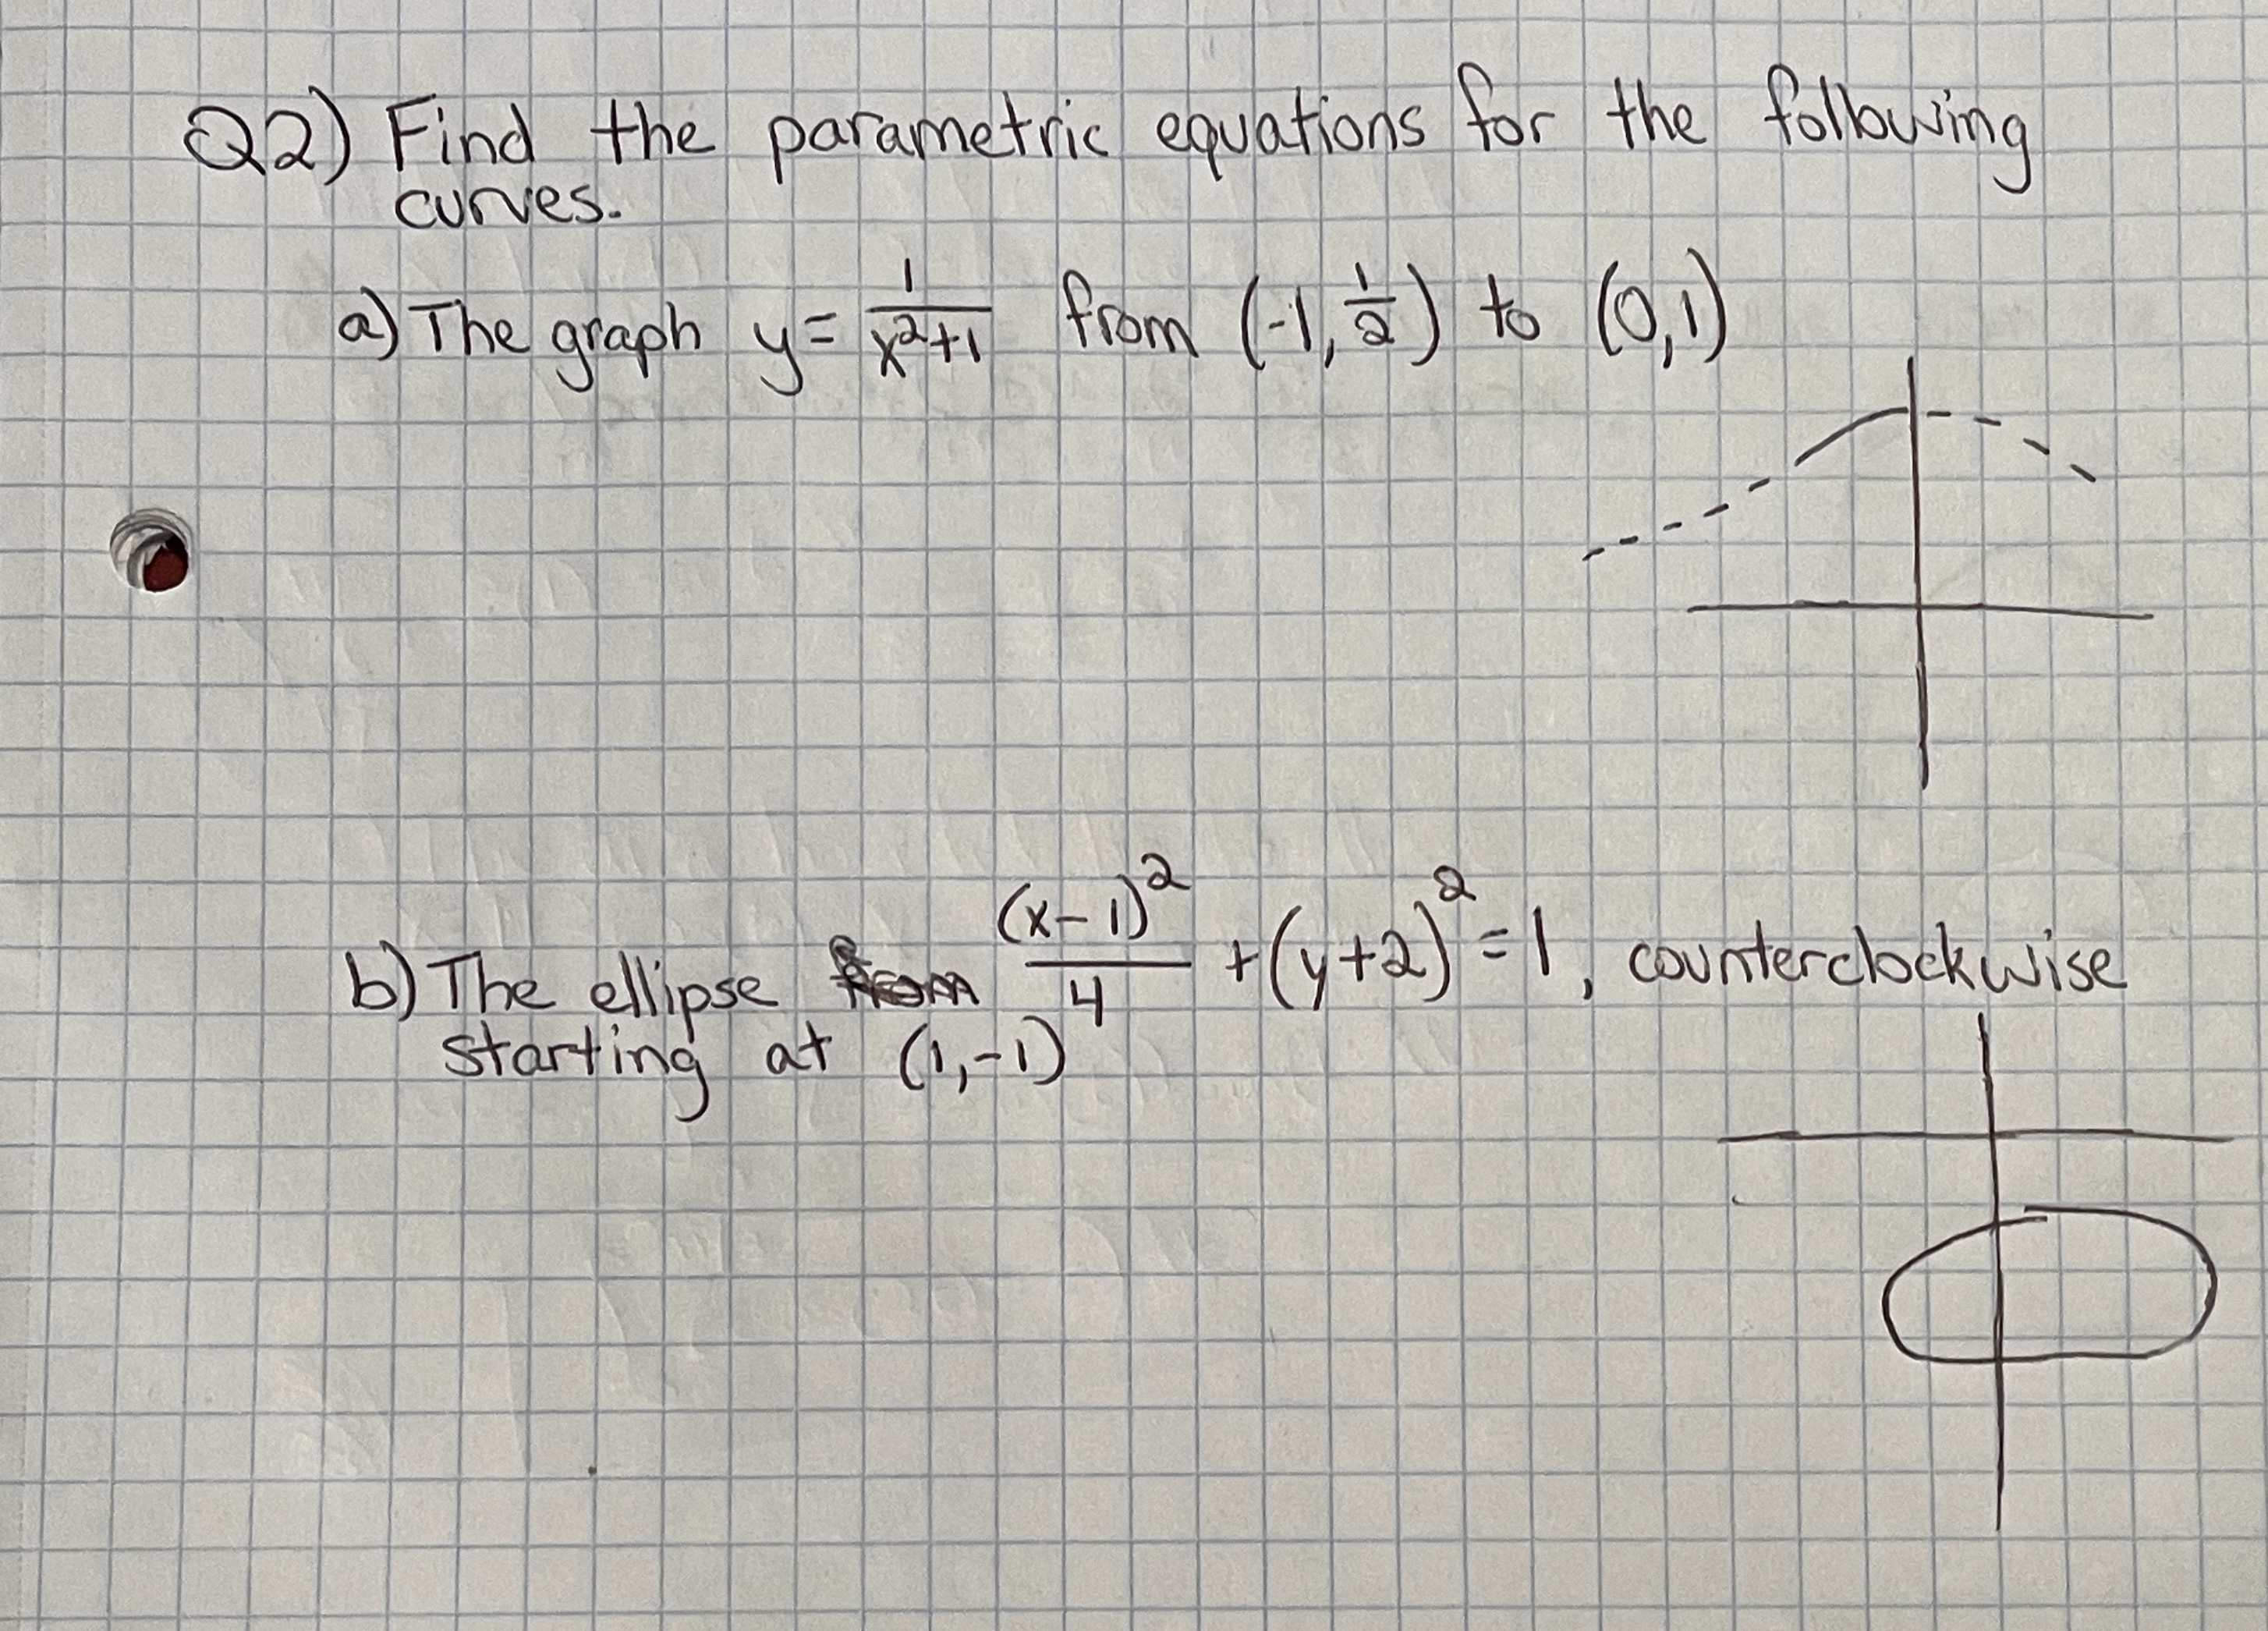 Q2) Find the parametric equations for the following
curves.
a) The graph y = 1/(x²+1) from (-1, 1/2) to (0,1)
b) The ellipse (x-1)²/4 + (y+2)² = 1, counterclockwise
starting at (1,-1)